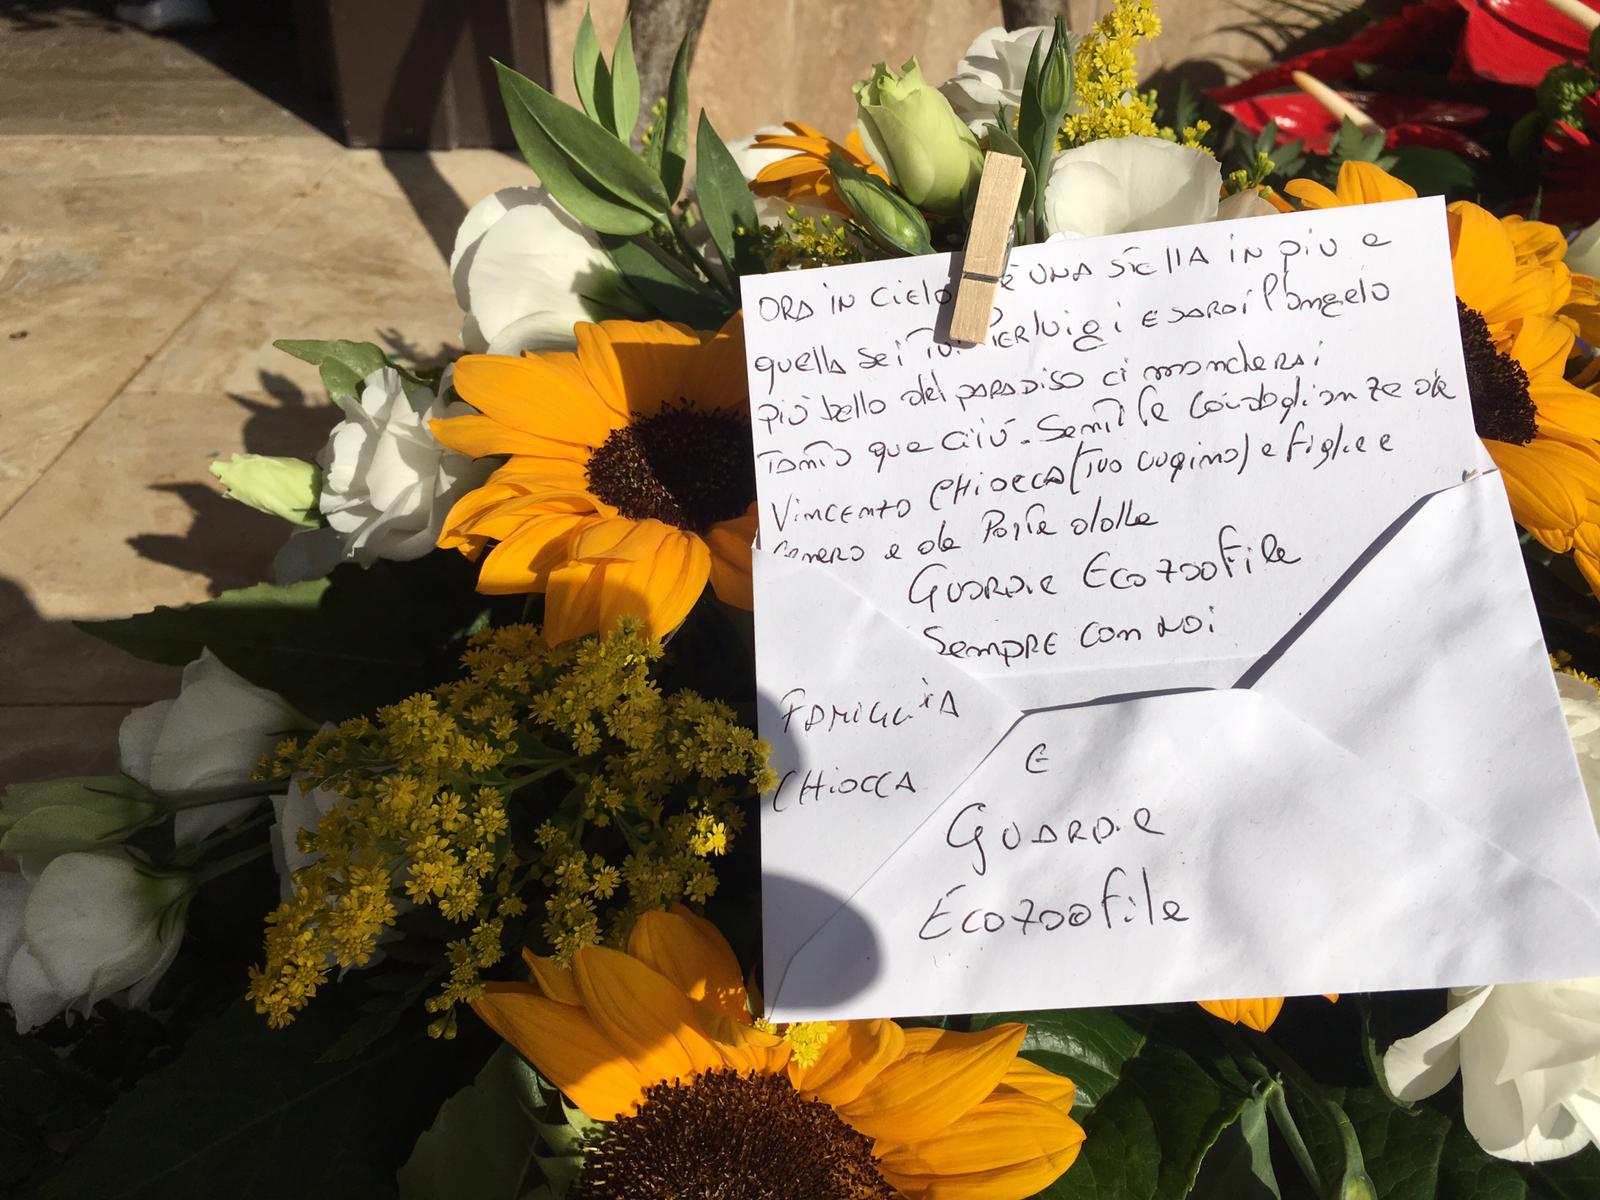 ORA IN CIELO è UNA STELLA IN PIU e
quella SEI TU. PIERluigi E SARAI l'angelo
più bello del PARADISO ci mancherai
Tanto que Giù. Senti le condoglianze da
VINCENZO CHIOCCA (TUO cugino) e figlie e
Genero e da Parte dalle
GUARDIE ECOZOOFILE
SEMPRE CON NOI
FAMIGLIA
CHIOCCA
E
GUARDIE
ECOZOOFILE